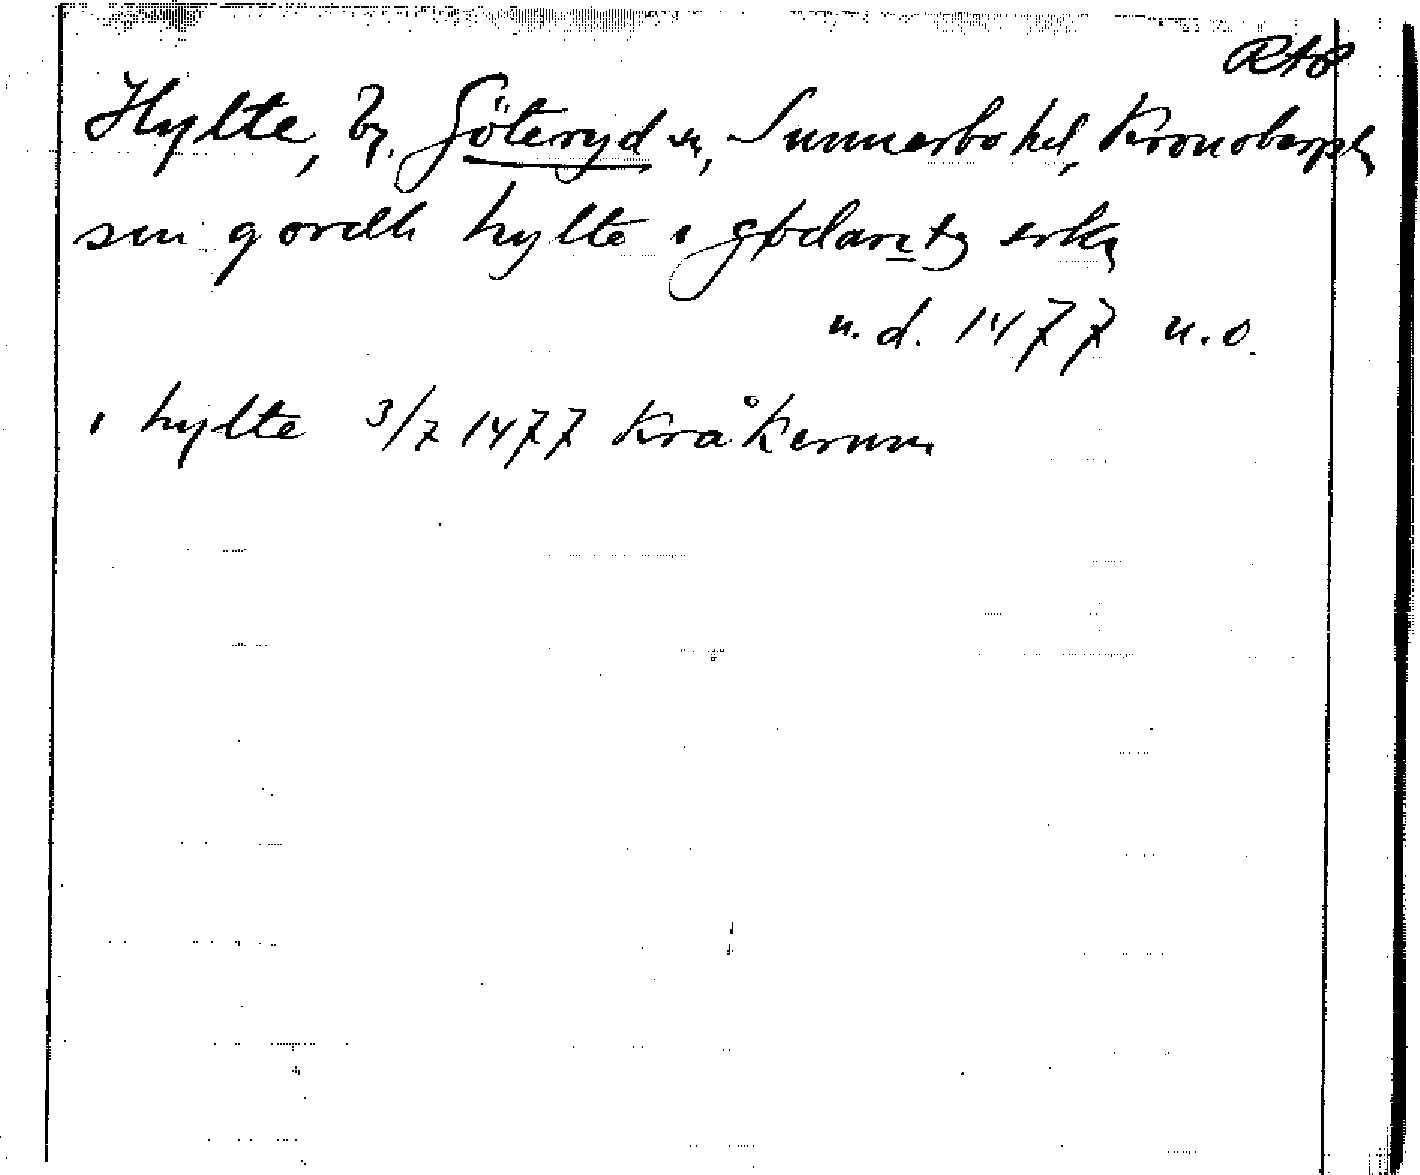 Hylte, by. Göteryd sn, Sunnerbo hd, Kronobergs l
sin gordh hylte i gødaritz
u.d. 1477 u.o.
i hylte 3/7 1477 Kråkerum